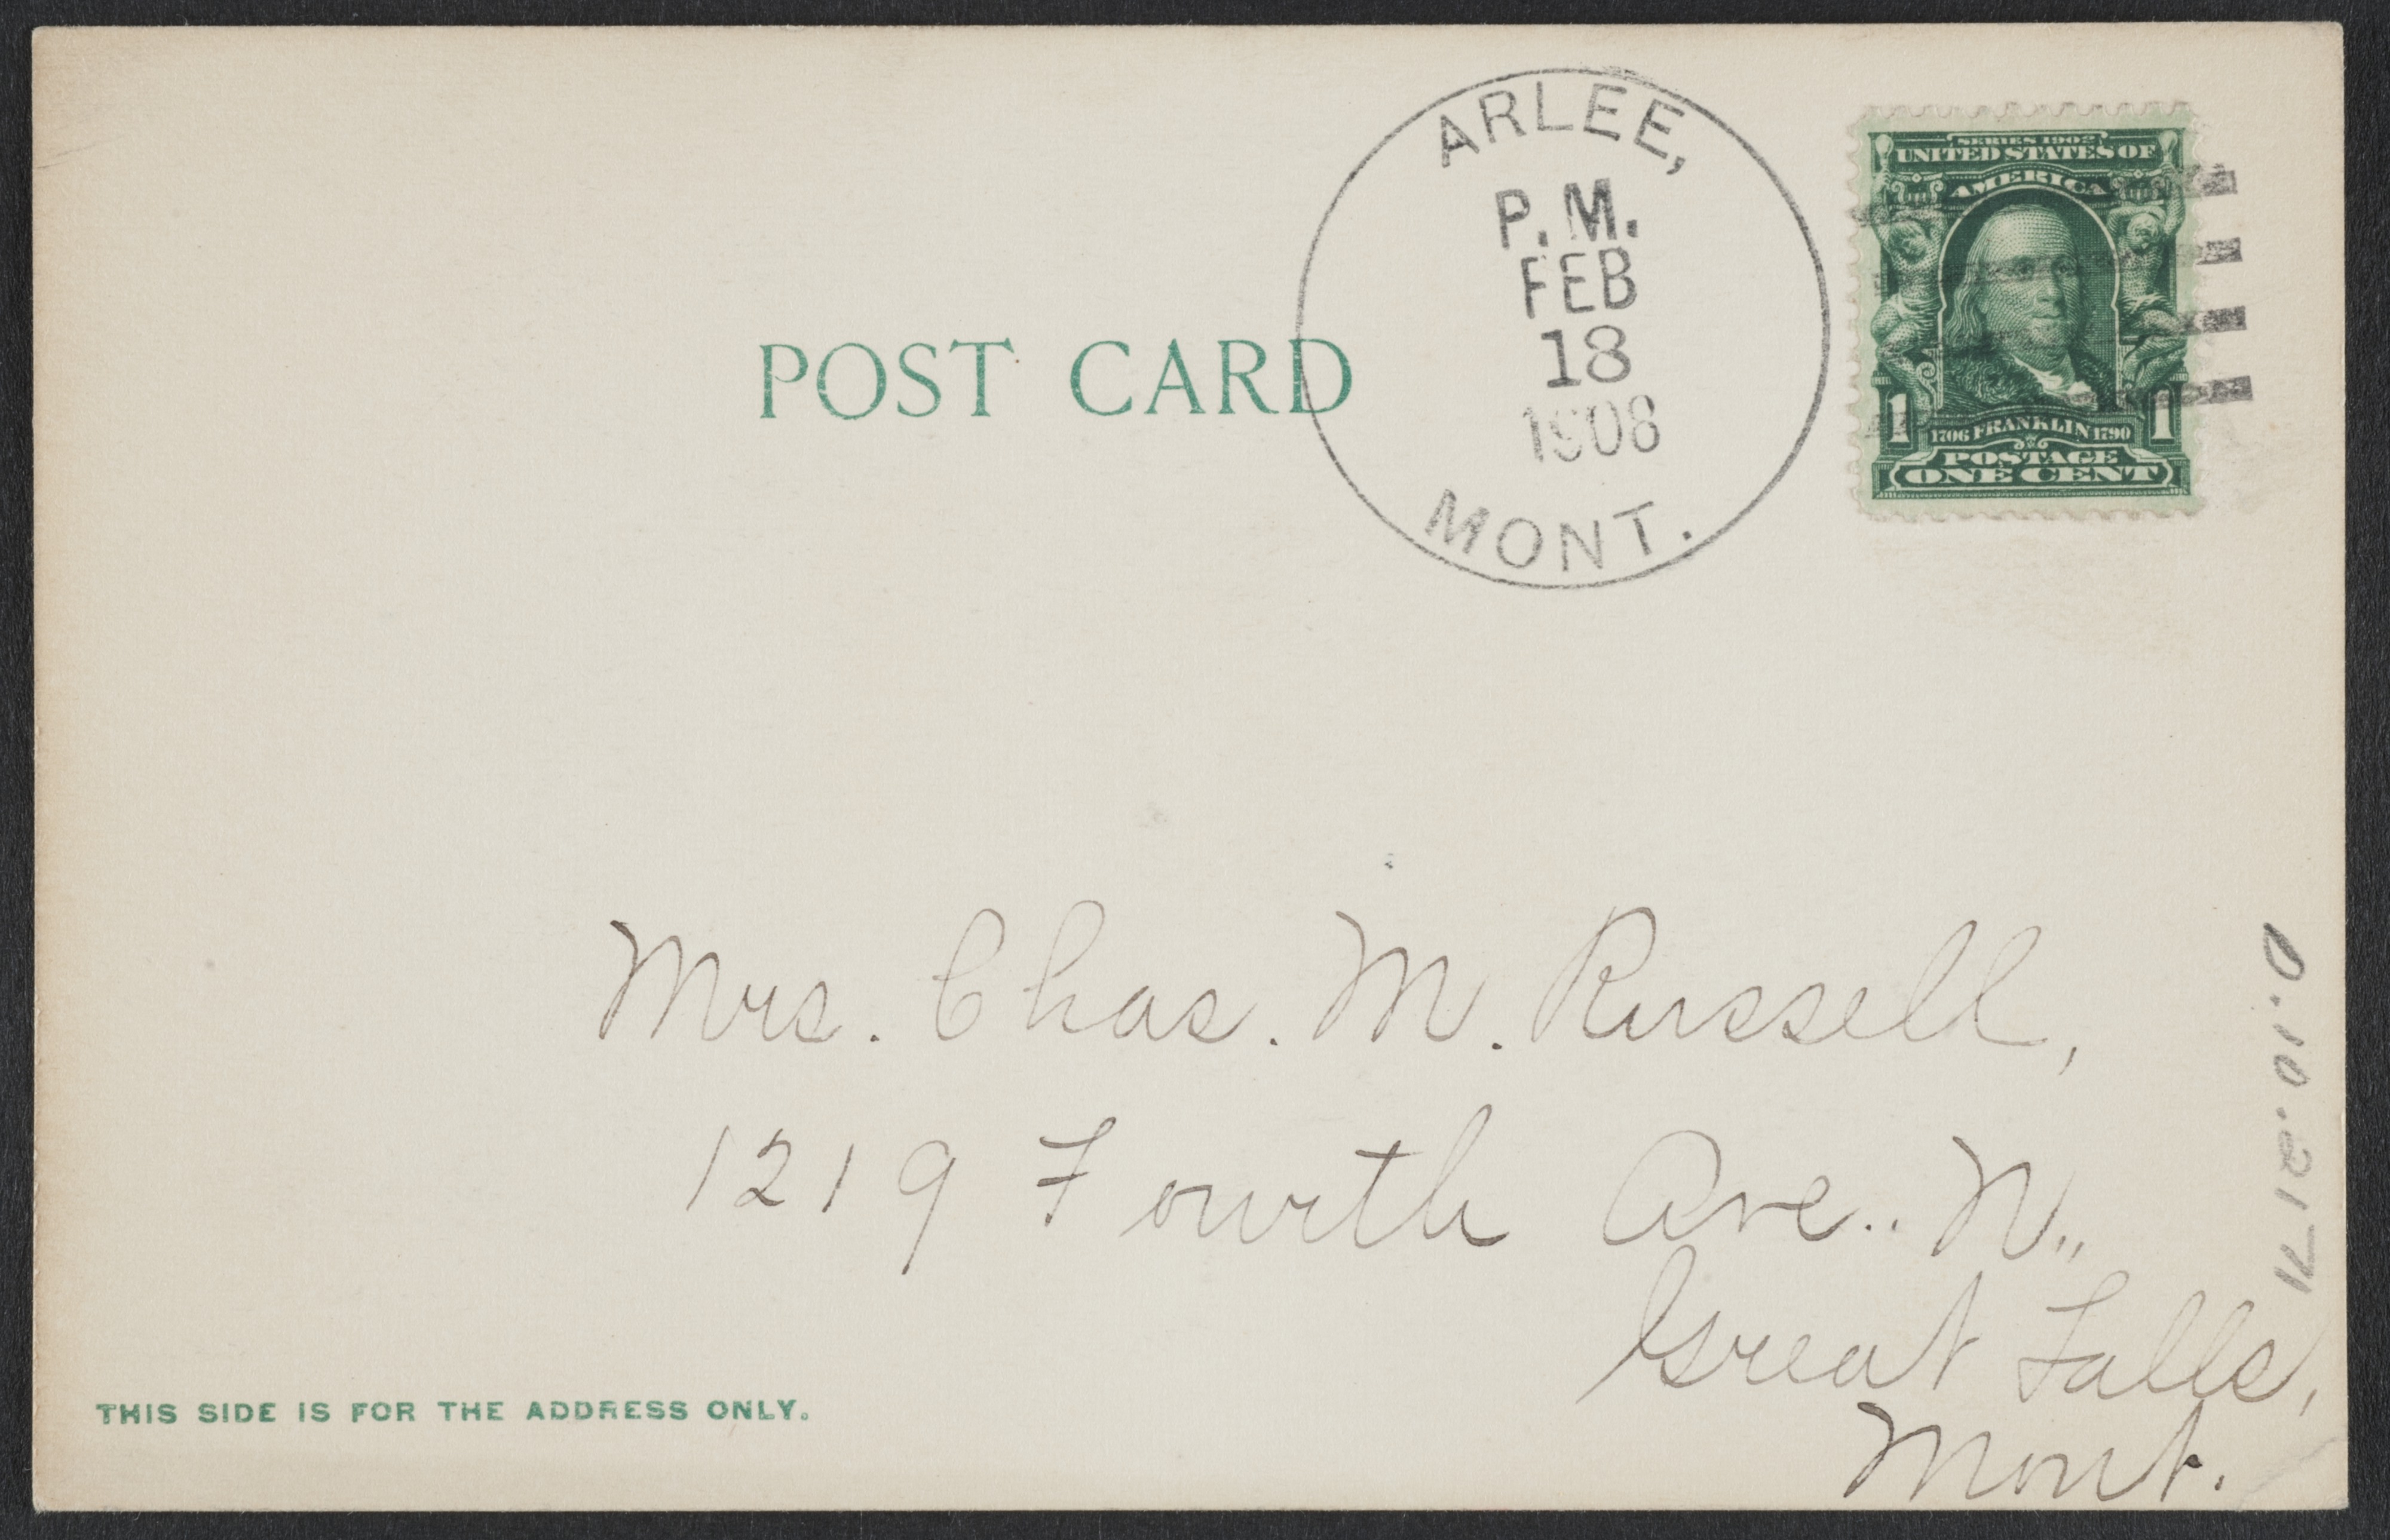 POST CARD
ARLEE,
P.M.
FEB
18
1908
MONT.
SERIES 1902
UNITED STATES OF
AMERICA
1 1
1706 FRANKLIN 1790
POSTAGE
ONE CENT
Mrs. Chas. M. Russell,
1219 Fourth Ave.. N.,
Great Falls,
Mont.
THIS SIDE IS FOR THE ADDRESS ONLY.